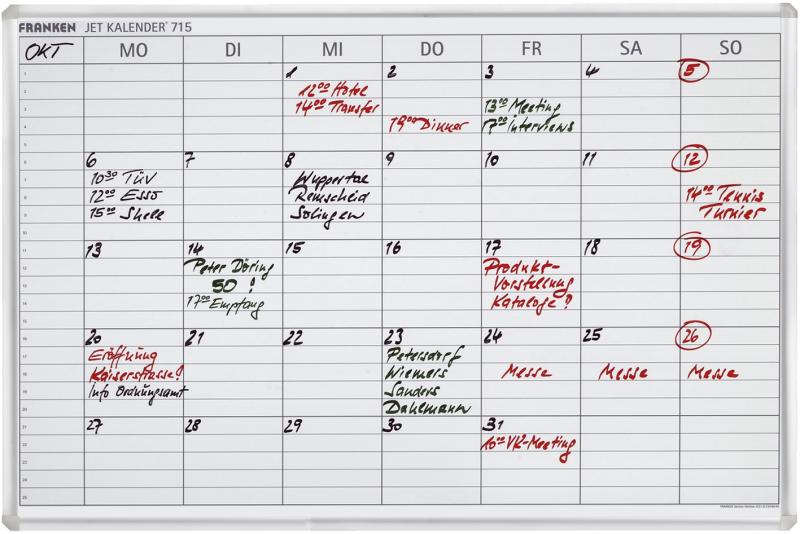 FRANKEN JET KALENDER® 715
OKT MO DI MI DO FR SA SO
1 2 3 4 5
12⁰⁰ Hotel
14⁰⁰ Transfer
19⁰⁰ Dinner
13⁰⁰ Meeting
17⁰⁰ Interviews
6 7 8 9 10 11 12
10³⁰ TÜV
12⁰⁰ Esso
15⁰⁰ Shell
Wuppertal
Remscheid
Solingen
14⁰⁰ Tennis
Turnier
13 14 15 16 17 18 19
Peter Döring
50 !
17⁰⁰ Empfang
Produkt-
Vorstellung
Kataloge ?
20 21 22 23 24 25 26
Eröffnung
Kaiserstrasse!
Info Ordnungsamt
Petersdorf
Wiemers
Sanders
Dahlmann
Messe Messe Messe
27 28 29 30 31
10⁰⁰ VK-Meeting